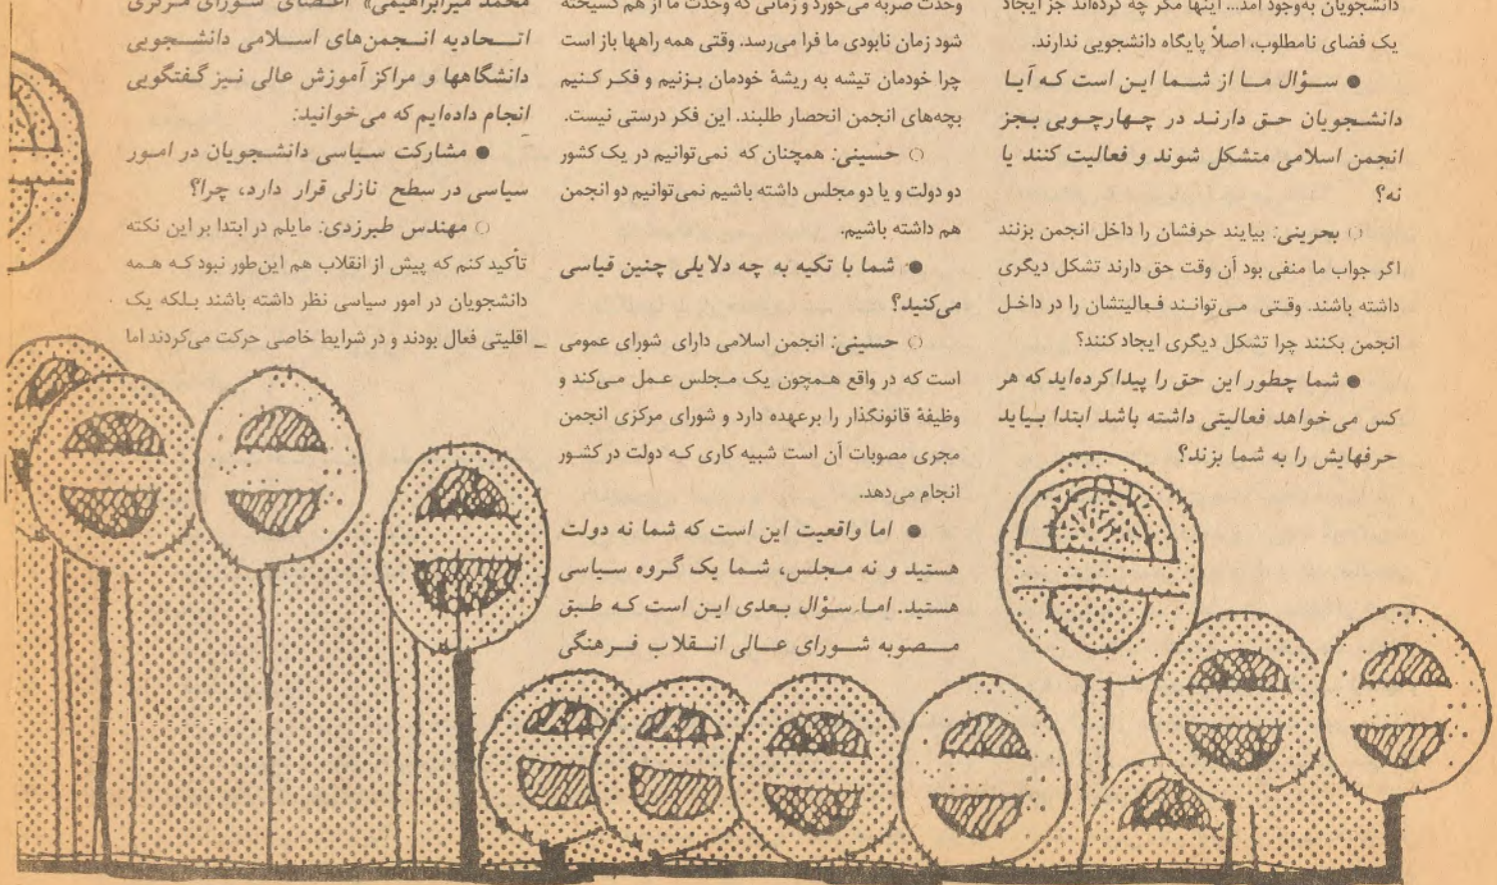 دانشجویان به‌وجود آمد... اینها مگر چه کرده‌اند جز ایجاد
یک فضای نامطلوب، اصلاً پایگاه دانشجویی ندارند.
● سؤال ما از شما این است که آیا
دانشجویان حق دارند در چهارچوبی بجز
انجمن اسلامی متشکل شوند و فعالیت کنند یا
نه؟
○ بحرینی: بیایند حرفشان را داخل انجمن بزنند
اگر جواب ما منفی بود آن وقت حق دارند تشکل دیگری
داشته باشند. وقتی می‌توانند فعالیتشان را در داخل
انجمن بکنند چرا تشکل دیگری ایجاد کنند؟
● شما چطور این حق را پیدا کرده‌اید که هر
کس می‌خواهد فعالیتی داشته باشد ابتدا بیاید
حرفهایش را به شما بزند؟
وحدت ضربه می‌خورد و زمانی که وحدت ما از هم گسیخته
شود زمان نابودی ما فرا می‌رسد. وقتی همه راهها باز است
چرا خودمان تیشه به ریشهٔ خودمان بزنیم و فکر کنیم
بچه‌های انجمن انحصار طلبند. این فکر درستی نیست.
○ حسینی: همچنان که نمی‌توانیم در یک کشور
دو دولت و یا دو مجلس داشته باشیم نمی‌توانیم دو انجمن
هم داشته باشیم.
● شما با تکیه به چه دلایلی چنین قیاسی
می‌کنید؟
○ حسینی: انجمن اسلامی دارای شورای عمومی
است که در واقع همچون یک مجلس عمل می‌کند و
وظیفهٔ قانونگذار را برعهده دارد و شورای مرکزی انجمن
مجری مصوبات آن است شبیه کاری که دولت در کشور
انجام می‌دهد.
● اما واقعیت این است که شما نه دولت
هستید و نه مجلس، شما یک گروه سیاسی
هستید. اما سؤال بعدی این است که طبق
مصوبه شورای عالی انقلاب فرهنگی
محمد میرابراهیمی» اعضای شورای مرکزی
اتحادیه انجمن‌های اسلامی دانشجویی
دانشگاهها و مراکز آموزش عالی نیز گفتگویی
انجام داده‌ایم که می‌خوانید:
● مشارکت سیاسی دانشجویان در امور
سیاسی در سطح نازلی قرار دارد، چرا؟
○ مهندس طبرزدی: مایلم در ابتدا بر این نکته
تأکید کنم که پیش از انقلاب هم این‌طور نبود که همه
دانشجویان در امور سیاسی نظر داشته باشند بلکه یک
اقلیتی فعال بودند و در شرایط خاصی حرکت می‌کردند اما